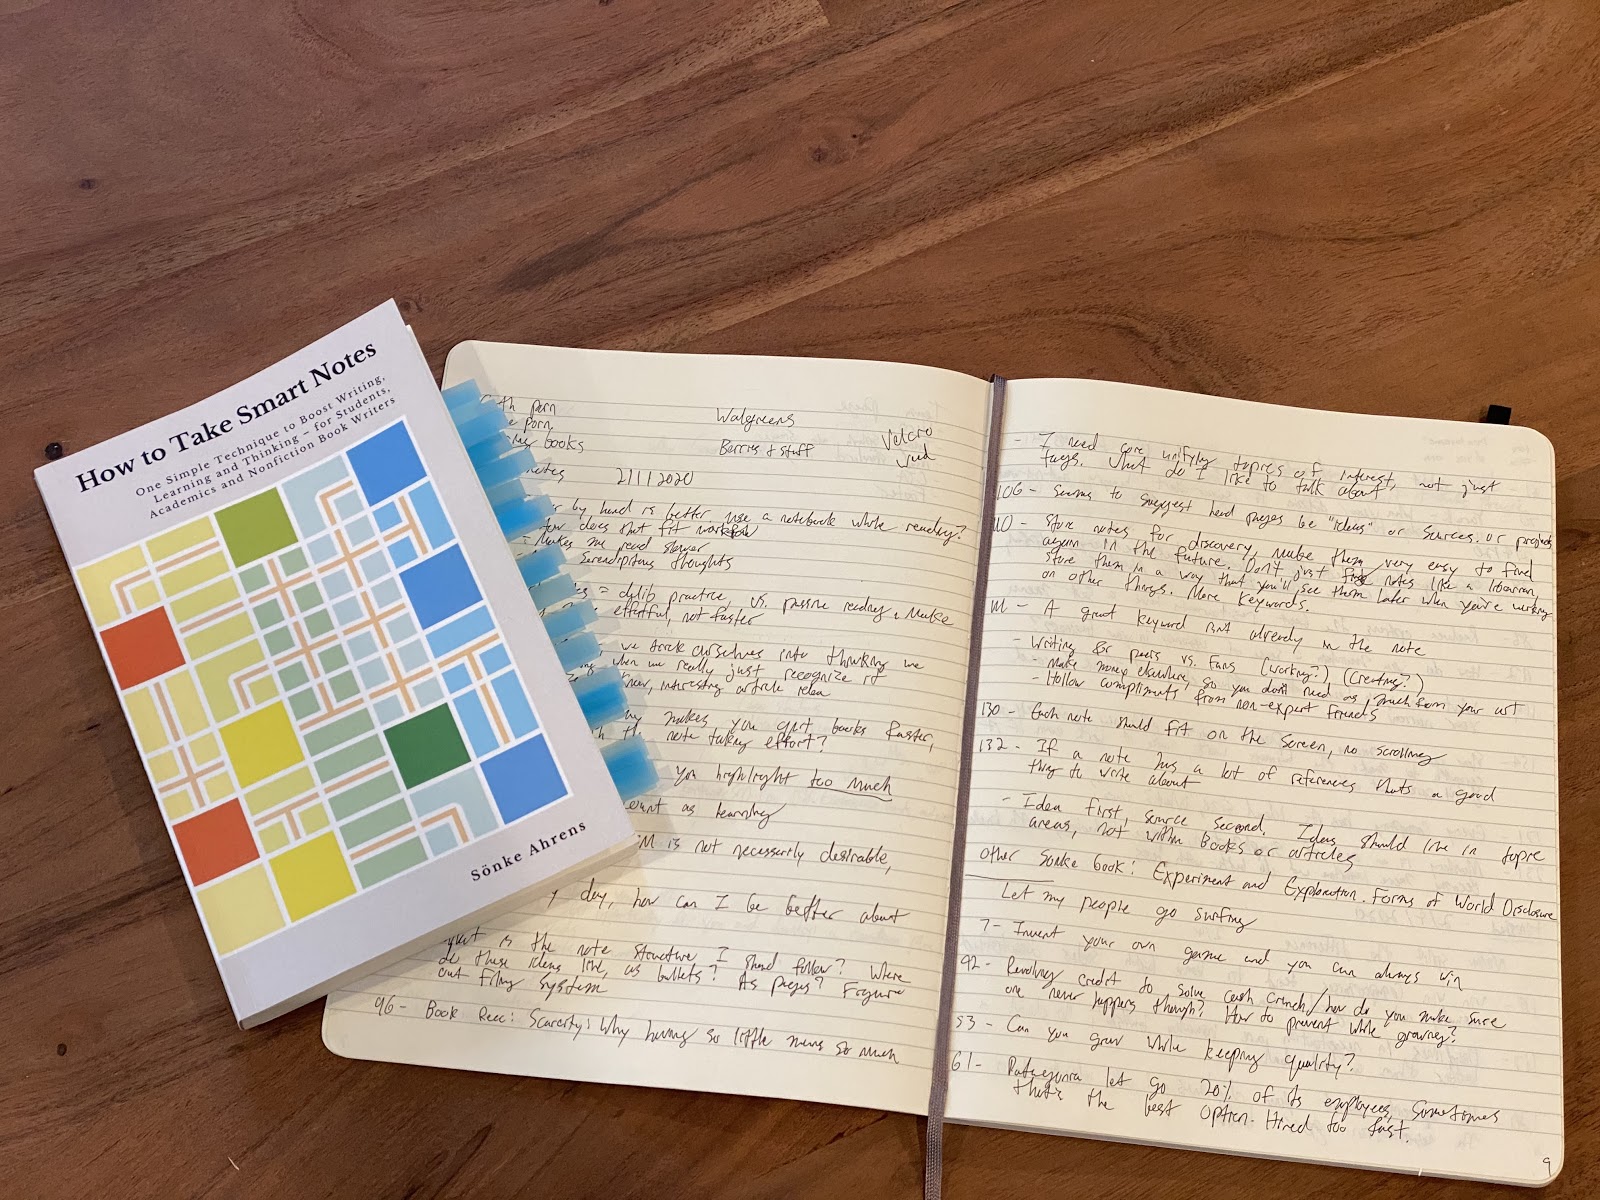 How to Take Smart Notes
One Simple Technique to Boost Writing,
Learning and Thinking – for Students,
Academics and Nonfiction Book Writers
Sönke Ahrens
porn
Walgreens
porn,
books
Berries & stuff
Velcro
notes
2/1/2020
by hand is better use a notebook while reading?
How does that fit workflow
- Makes me read slower
Serendipitous thoughts
= delib practice, vs. passive reading. Make
effortful, not faster
we trick ourselves into thinking we
when we really just recognize it
new, interesting article idea
makes you quit books faster,
the note taking effort?
you highlight too much
count as learning
is not necessarily desirable,
day, how can I be better about
what is the note structure I should follow? Where
do these ideas live, as bullets? As pages? Figure
out filing system
96 - Book Rec: Scarcity: Why having so little means so much
- I need core unifying topics of interest, not just
tags. What do I like to talk about
106 - Seems to suggest head pages be "ideas" or sources. or projects
110 - Store notes for discovery, make them very easy to find
again in the future. Don't just notes like a librarian,
store them in a way that you'll see them later when you're working
on other things. More keywords.
111 - A great keyword isn't already in the note
- Writing for peers vs. fans (working?) (Creating?)
- Make money elsewhere, so you don't need as much from your art
- Hollow compliments from non-expert friends
130 - Each note should fit on the screen, no scrolling
132 - If a note has a lot of references thats a good
thing to write about
- Idea first, source second. Ideas should live in topic
areas, not within books or articles
other Sönke book: Experiment and Exploration. Forms of World Disclosure
Let my people go surfing
7 - Invent your own game and you can always win
92 - Revolving credit to solve cash crunch/how do you make sure
one never happens though? How to prevent while growing?
53 - Can you grow while keeping quality?
61 - Patagonia let go 20% of its employees, Sometimes
that's the best option. Hired too fast.
9